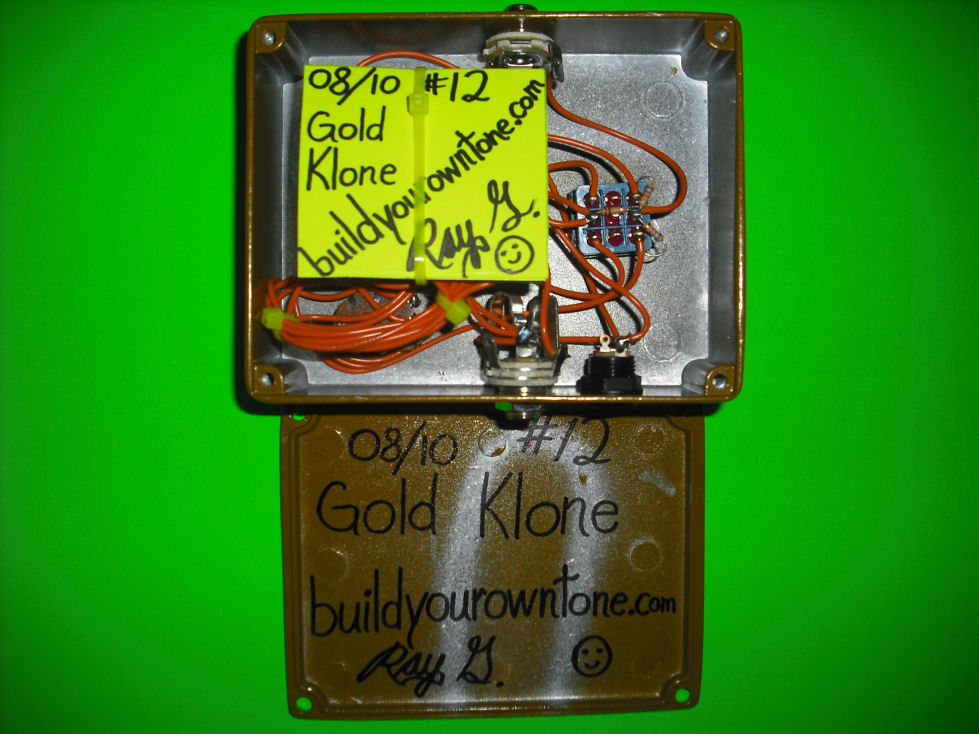 08/10 #12
Gold
Klone
buildyourowntone.com
Ray G.
08/10 #12
Gold Klone
buildyourowntone.com
Ray G.